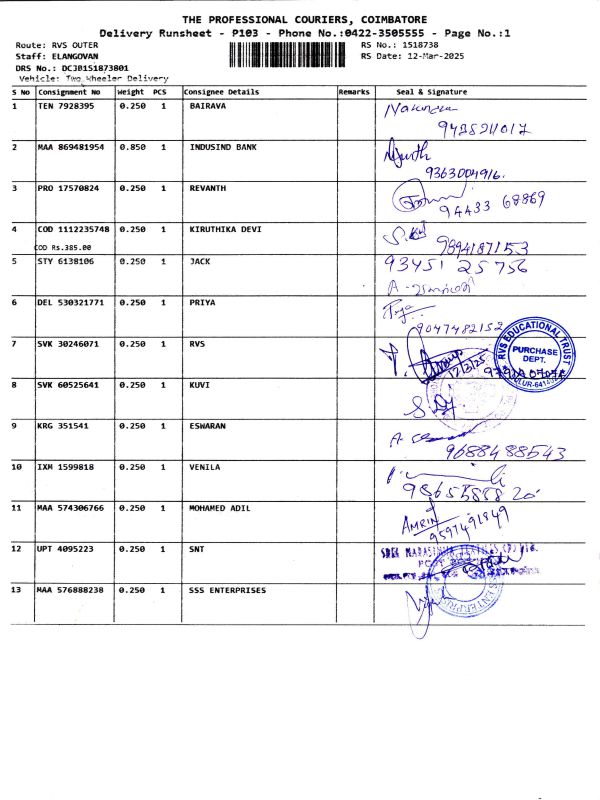 THE PROFESSIONAL COURIERS, COIMBATORE
Delivery Runsheet - P103 - Phone No.:0422-3505555 - Page No.:1
Route: RVS OUTER RS No.: 1518738
Staff: ELANGOVAN RS Date: 12-Mar-2025
DRS No.: DCJB151873801
Vehicle: Two Wheeler Delivery
S No Consignment No Weight PCS Consignee Details Remarks Seal & Signature
1 TEN 7928395 0.250 1 BAIRAVA
2 MAA 869481954 0.850 1 INDUSIND BANK
9363004916.
3 PRO 17570824 0.250 1 REVANTH
94433 68869
4 COD 1112235748 0.250 1 KIRUTHIKA DEVI
COD Rs.385.00 9894187153
5 STY 6138106 0.250 1 JACK 93451 25756
6 DEL 530321771 0.250 1 PRIYA Priya
9047482152
7 SVK 30246071 0.250 1 RVS RVS EDUCATIONAL TRUST
PURCHASE
DEPT.
12/3/25
8 SVK 60525641 0.250 1 KUVI
9 KRG 351541 0.250 1 ESWARAN
9688488543
10 IXM 1599818 0.250 1 VENILA
11 MAA 574306766 0.250 1 MOHAMED ADIL AMRIN
9597491849
12 UPT 4095223 0.250 1 SNT
13 MAA 576888238 0.250 1 SSS ENTERPRISES